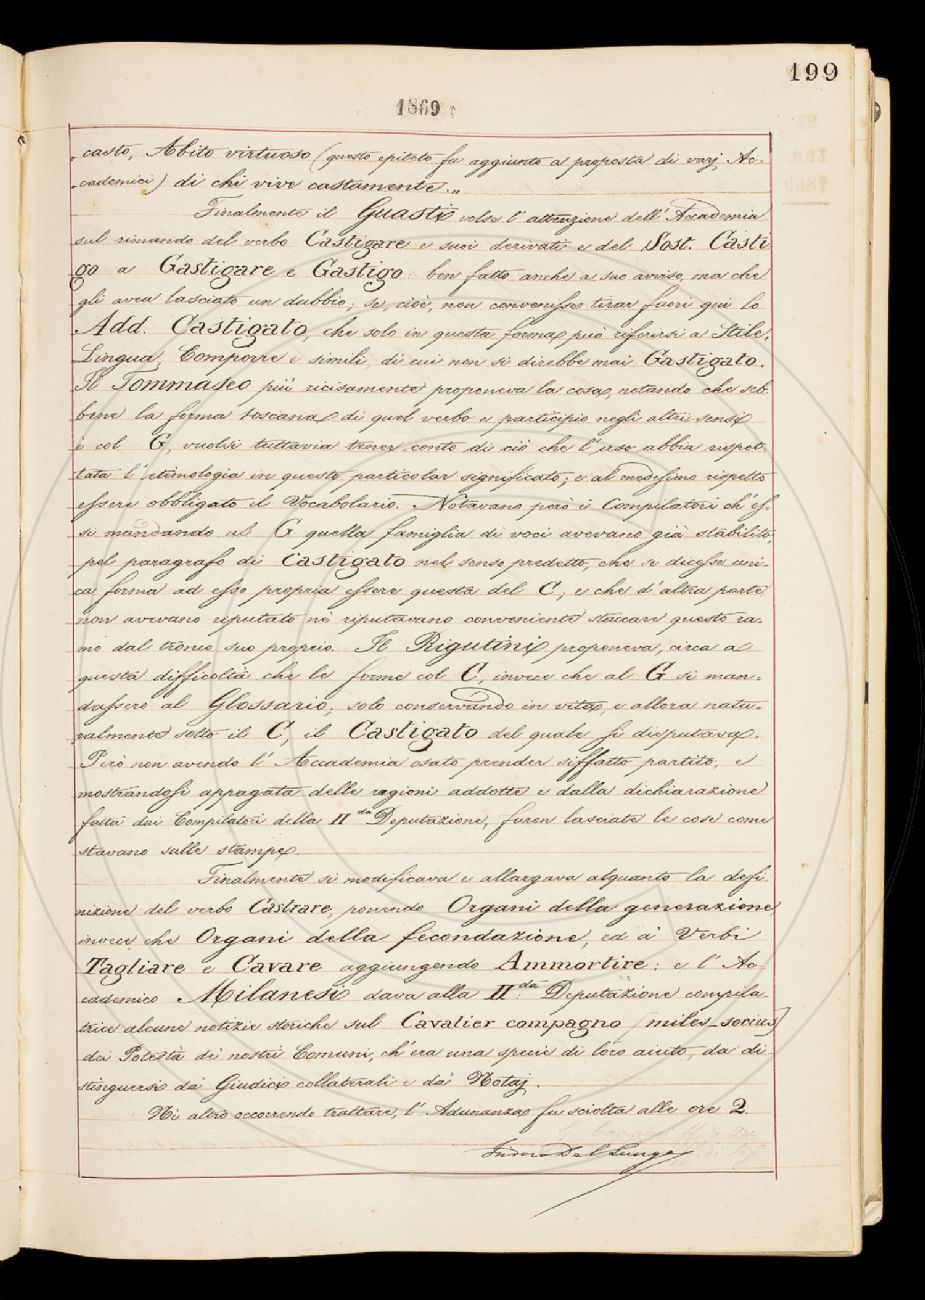 199
1869
„casto, Abito virtuoso (questo epiteto fu aggiunto a proposta di varj Ac-
„cademici) di chi vive castamente.„
Finalmente il Guasti volse l'attenzione dell'Accademia
sul rimando del verbo Castigare e suoi derivati e del Sost. Casti
go a Gastigare e Gastigo: ben fatto anche a suo avviso, ma che
gli avea lasciato un dubbio; se, cioè, non convenisse tirar fuori qui lo
Add. Castigato, che solo in questa forma può riferirsi a Stile,
Lingua, Comporre e simili, di cui non si direbbe mai Gastigato.
Il Tommaseo più ricisamente proponeva la cosa, notando che seb-
bene la forma toscana di quel verbo e participio negli altri sensi
è col G, vuolsi tuttavia tener conto di ciò che l'uso abbia rispet-
tata l'etimologia in questo particolar significato; e al medesimo rispetto
essere obbligato il Vocabolario. Notavano però i Compilatori ch'es-
si mandando al G quella famiglia di voci avevano già stabilito,
pel paragrafo di Castigato nel senso predetto, che si dicesse uni-
ca forma ad esso propria essere questa del C; e che d'altra parte
non avevano reputato nè reputavano conveniente staccare questo ra-
mo dal tronco suo proprio. Il Rigutini proponeva, circa a
questa difficoltà che le forme col C, invece che al G si man-
dassero al Glossario, solo conservando in vita, e allora natu-
ralmente sotto il C, il Castigato del quale si disputava.
Però non avendo l'Accademia osato prender siffatto partito, e
mostrandosi appagata delle ragioni addotte e dalla dichiarazione
fatta dai Compilatori della IIda Deputazione, furon lasciate le cose come
stavano sulle stampe.
Finalmente si modificava e allargava alquanto la defi
nizione del verbo Castrare, ponendo Organi della generazione
invece che Organi della fecondazione, ed a' Verbi
Tagliare e Cavare aggiungendo Ammortire; e l'Ac-
cademico Milanesi dava alla IIda Deputazione compila-
trice alcune notizie storiche sul Cavalier compagno (miles socius)
dei Potestà de' nostri Comuni, ch'era una specie di loro aiuto, da di-
stinguersi da' Giudici collaterali e da' Notaj.
Nè altro occorrendo trattare, l'Adunanza fu sciolta alle ore 2.
Isidoro Del Lungo